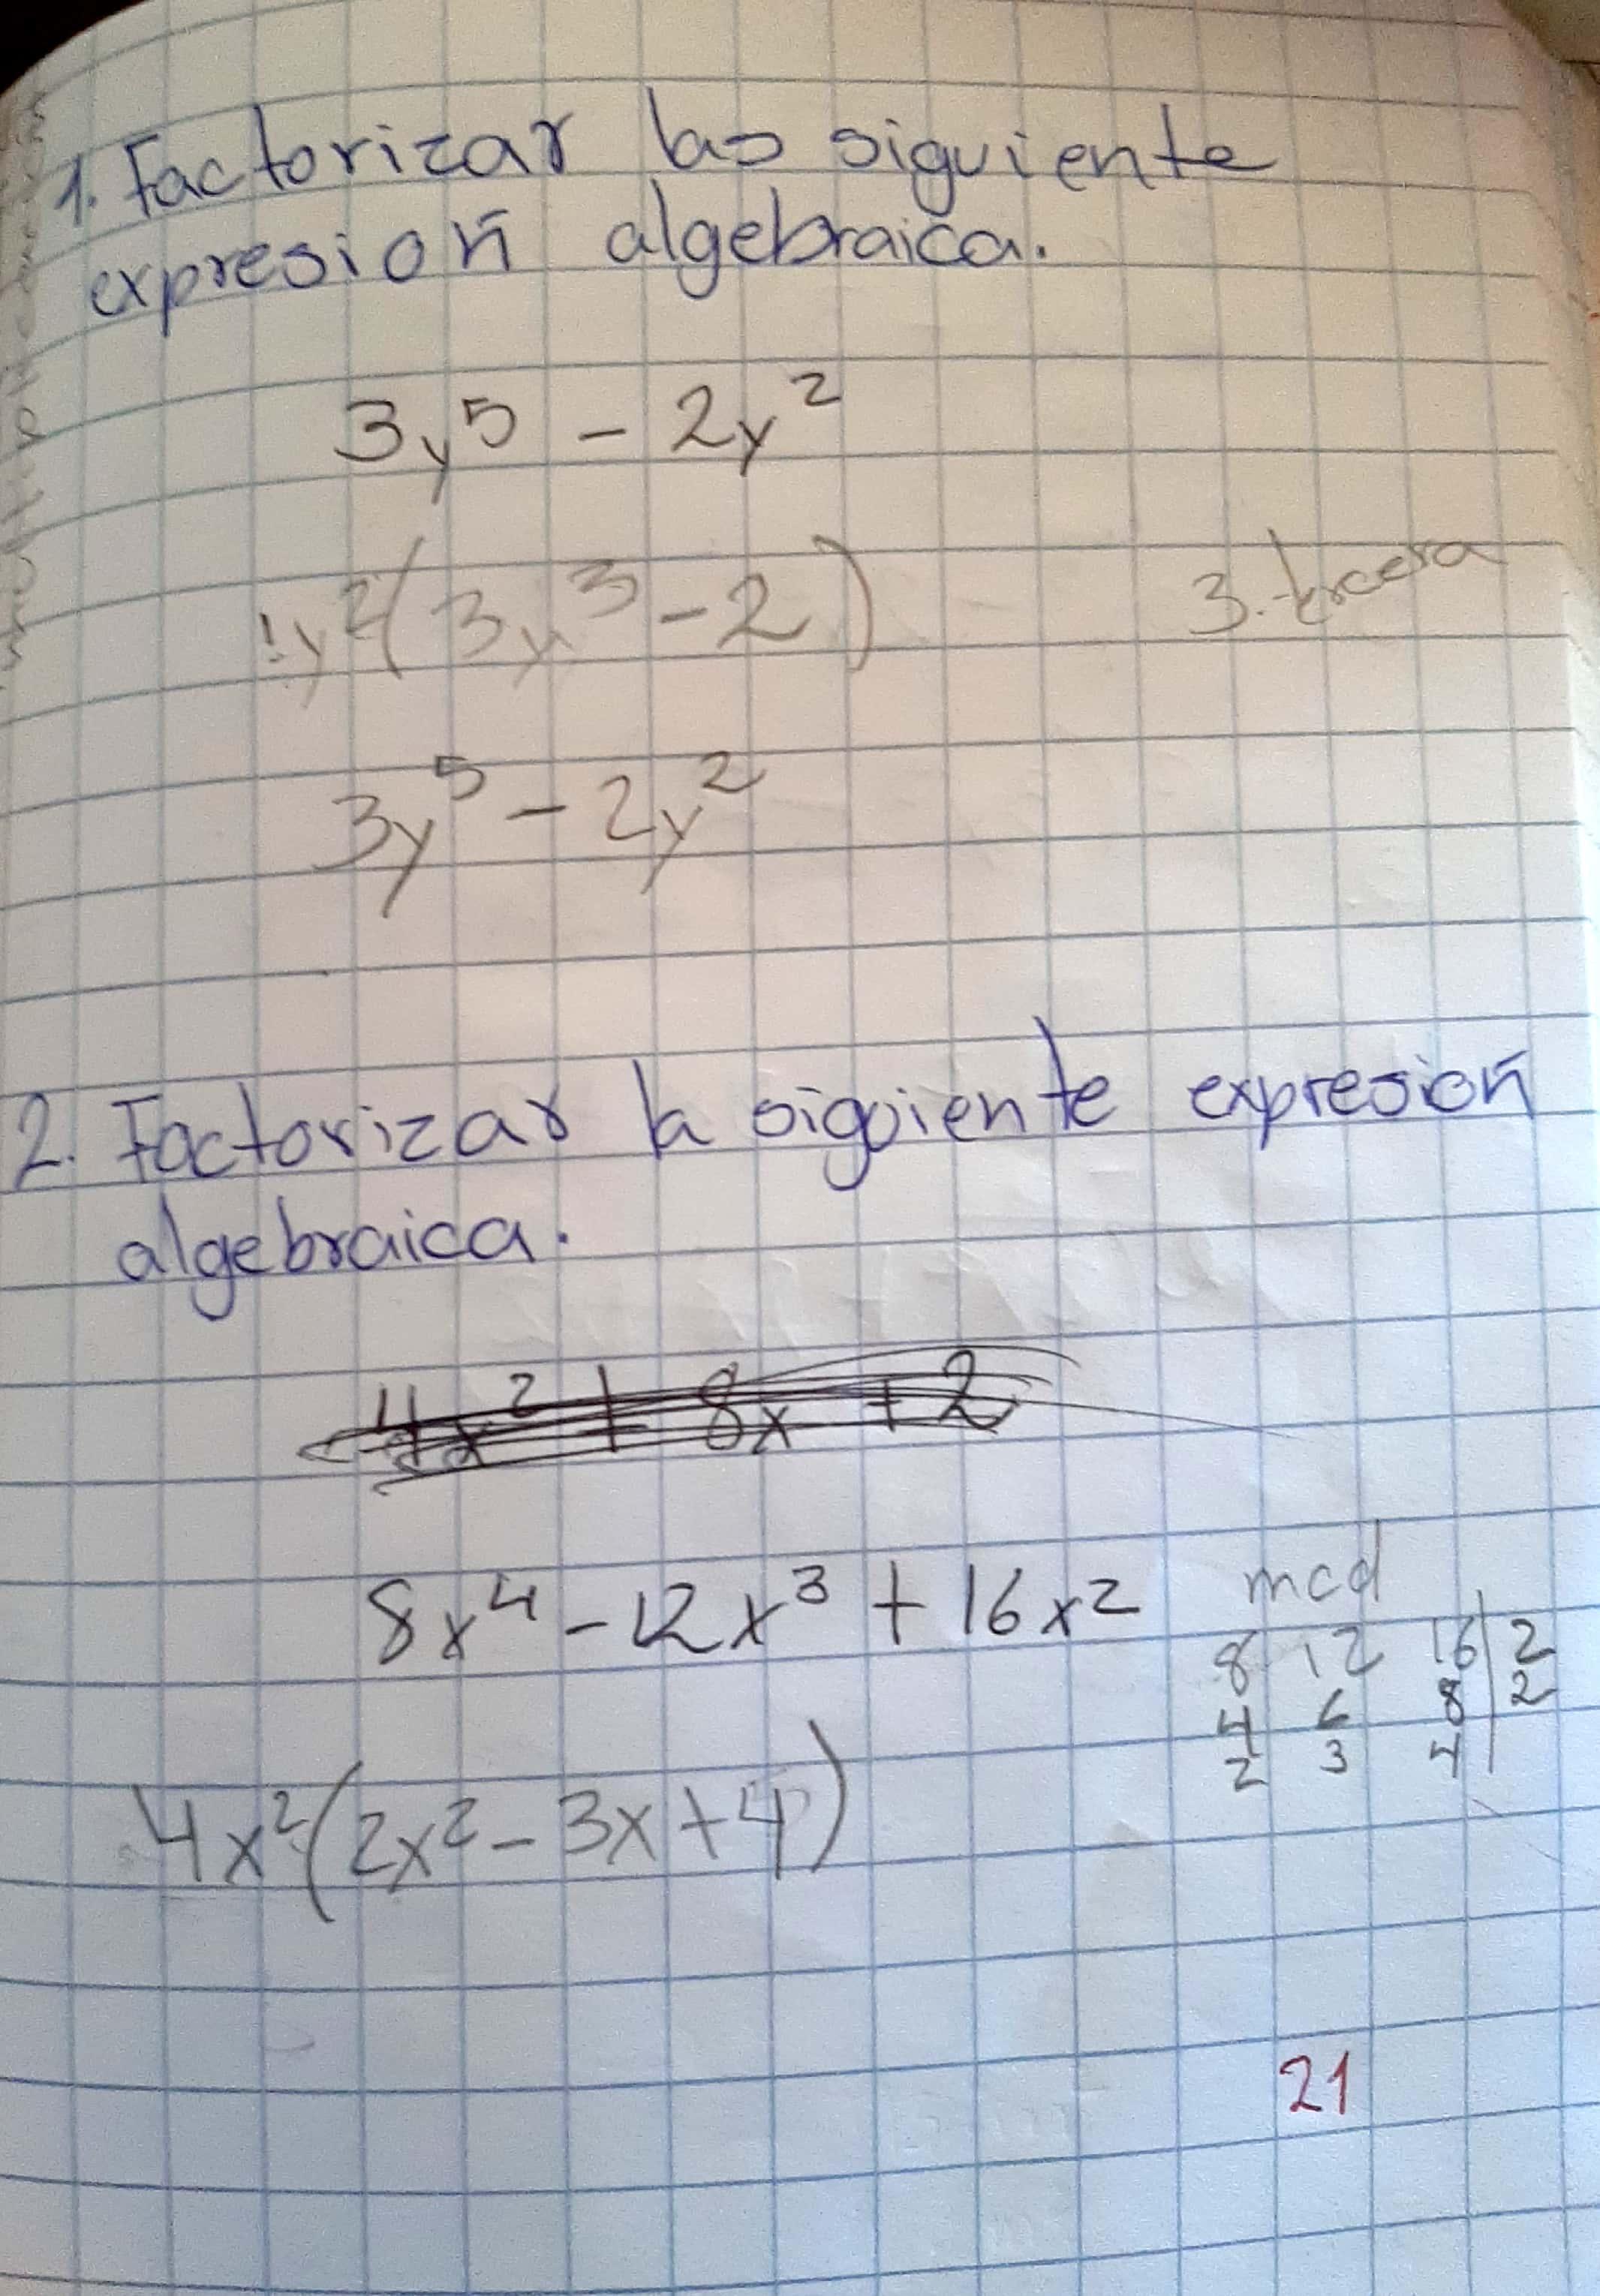 1. Factorizar las siguiente
expresión algebraica.
3y⁵ - 2y²
1y²(3y³ - 2)
3.
3y⁵ - 2y²
2. Factorizar la siguiente expresión
algebraica.
4x² + 8x + 2
8x⁴ - 12x³ + 16x²
mcd
8 12 16 | 2
4 6 8 | 2
2 3 4
4x²(2x² - 3x + 4)
21